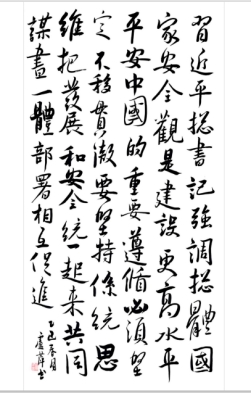 習近平捴書記強調捴體國
家安全觀是建設更高水平
平安中國的重要遵循必須堅
定不移貫澈要堅持係統思
維把發展和安全統一起來共同
謀畫一體部署相互促進
乙巳春月